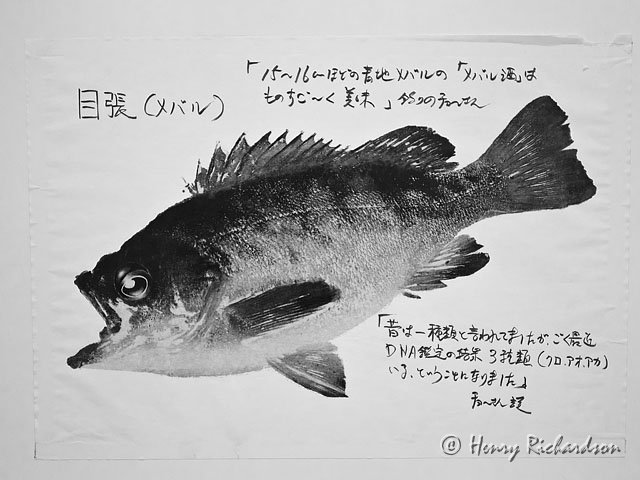 「15～16㎝ほどの青地メバルの「メバル酒」は
ものすご～く美味」釣りのチョーさん
目張(メバル)
「昔は一種類と言われてましたが、ごく最近
DNA鑑定の結果 3種類(クロ、アオ、アカ)
いる、ということになりました」
チョーさん談
© Henry Richardson